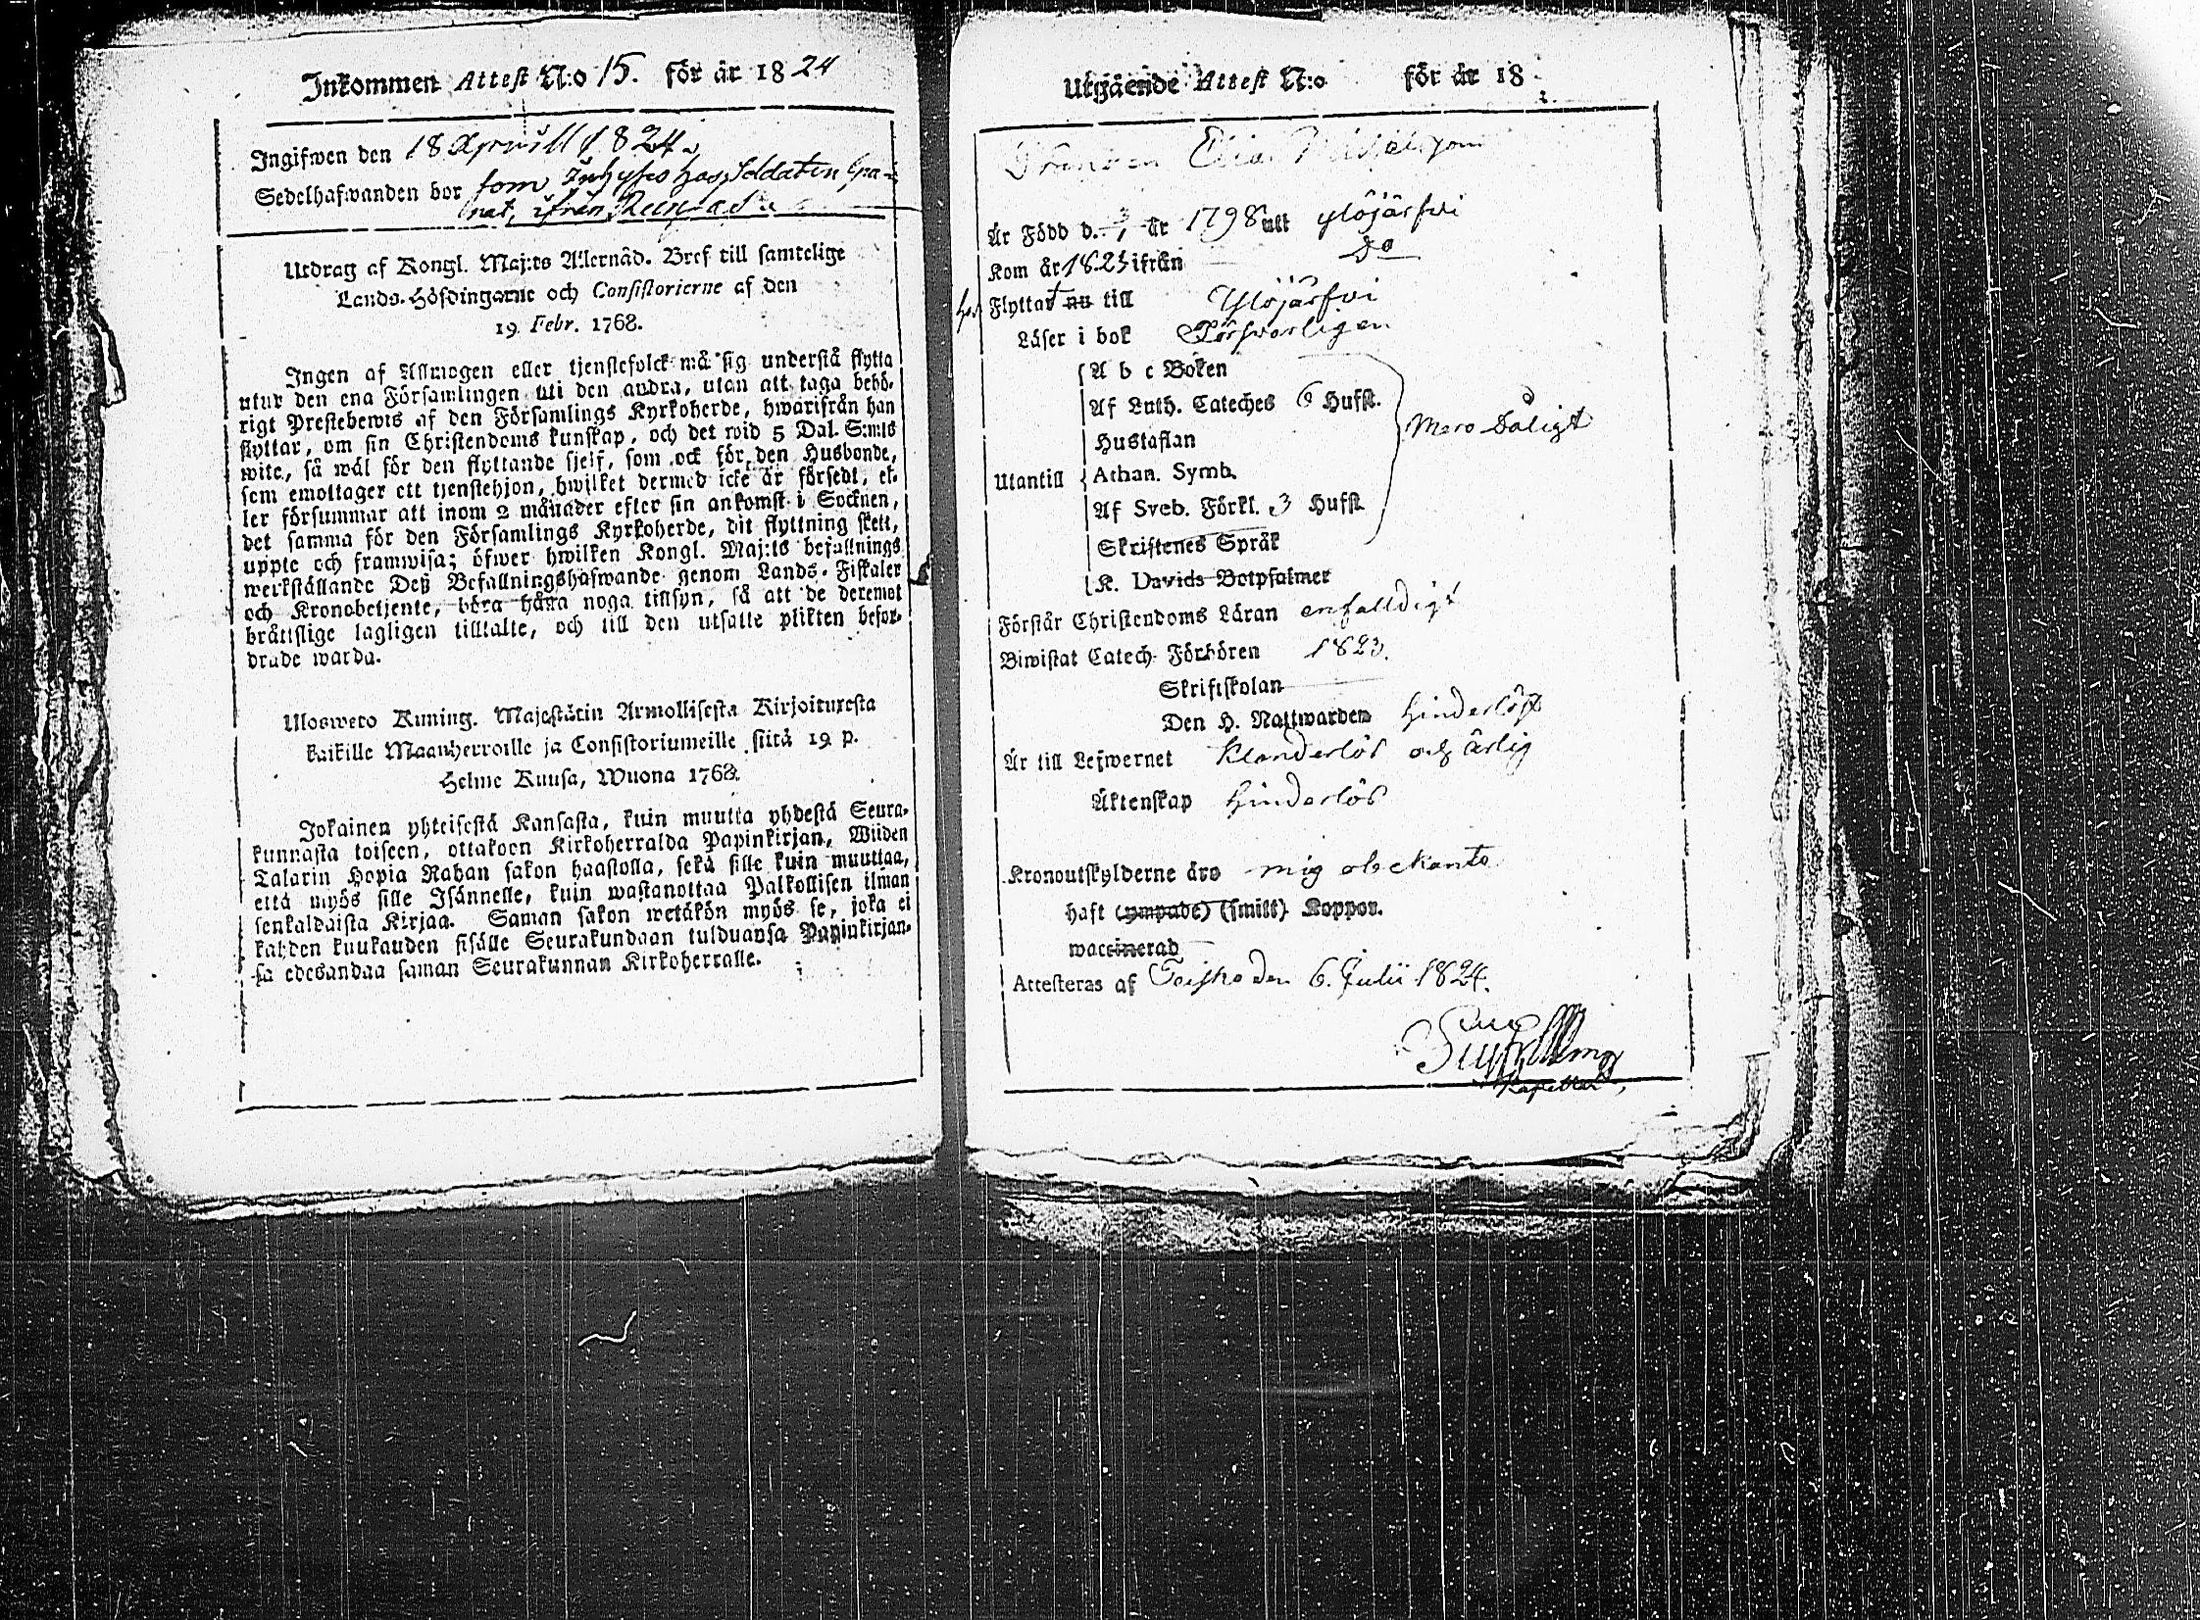 Inkommen Attest N:o 15. för år 1824
Ingifwen den 18 Aprill 1824.
Sedelhafwanden bor som Inhyses hos Soldaten
ifrån
Utdrag af Kongl. Maj:ts Allernåd. Bref till samtelige
Lands-Höfdingarne och Consistorierne af den
19 Febr. 1768.
Ingen af Allmogen eller tjenstefolck må sig understå flytta
utur den ena Församlingen uti den andra, utan att taga behö-
rigt Prestebewis af den Församlings Kyrkoherde, hwarifrån han
flyttar, om sin Christendoms kunskap, och det wid 5 Dal. S:mts
wite, så wäl för den flyttande sjelf, som ock för den Husbonde,
som emottager ett tjenstehjon, hwilket dermed icke är försedt, el-
ler försummar att inom 2 månader efter sin ankomst i Socknen,
det samma för den Församlings Kyrkoherde, dit flyttning skett,
uppte och framwisa; öfwer hwilken Kongl. Maj:ts befallnings
werkställande Deß Befallningshafwande genom Lands-Fiskaler
och Kronobetjente, böra hålla noga tillsyn, så att de deremot
bråttslige lagligen tilltalte, och till den utsatte plikten befor-
drade warda.
Ulosweto Kuning. Majestätin Armollisesta Kirjoituxesta
kaikille Maanherroille ja Consistoriumeille siitä 19 p.
Helme Kuusa, Wuona 1768.
Jokainen yhteisestä Kansasta, kuin muutta yhdestä Seura-
kunnasta toiseen, ottakoon Kirkoherralda Papinkirjan, Wiiden
Talarin Hopia Rahan sakon haastolla, sekä sille kuin muuttaa,
että myös sille Isännelle, kuin wastanottaa Palkollisen ilman
senkaldaista Kirjaa. Saman sakon wetäkön myös se, joka ei
kahden kuukauden sisälle Seurakundaan tulduansa Papinkirjan-
sa edesandaa saman Seurakunnan Kirkoherralle.
Utgående Attest N:o för år 18
Drängen Elias
Är Född d. år 1798 uti Ylöjärfvi
Kom år 1823 ifrån Do
Flyttar nu till Ylöjärfvi
Läser i bok Försvarligen
A b c Boken
Af Luth. Cateches 6 Hufst.
Hustaflan
Utantill Athan. Symb.
Af Sveb. Förkl. 3 Hufst.
Skriftenes Språk
K. Davids Botpsalmer
Mera Dåligt
Förstår Christendoms Läran enfalldigt
Biwistat Catech. Förhören 1823.
Skriftskolan
Den H. Nattwarden Hinderlöst
Är till Lefwernet Klanderlös och ärlig
Äktenskap Hinderlös
Kronoutskylderne äro mig obekanta
haft (ympade) (smitt) Koppor.
waccinerad
Attesteras af Teisko den 6. Julii 1824.
Kapellan